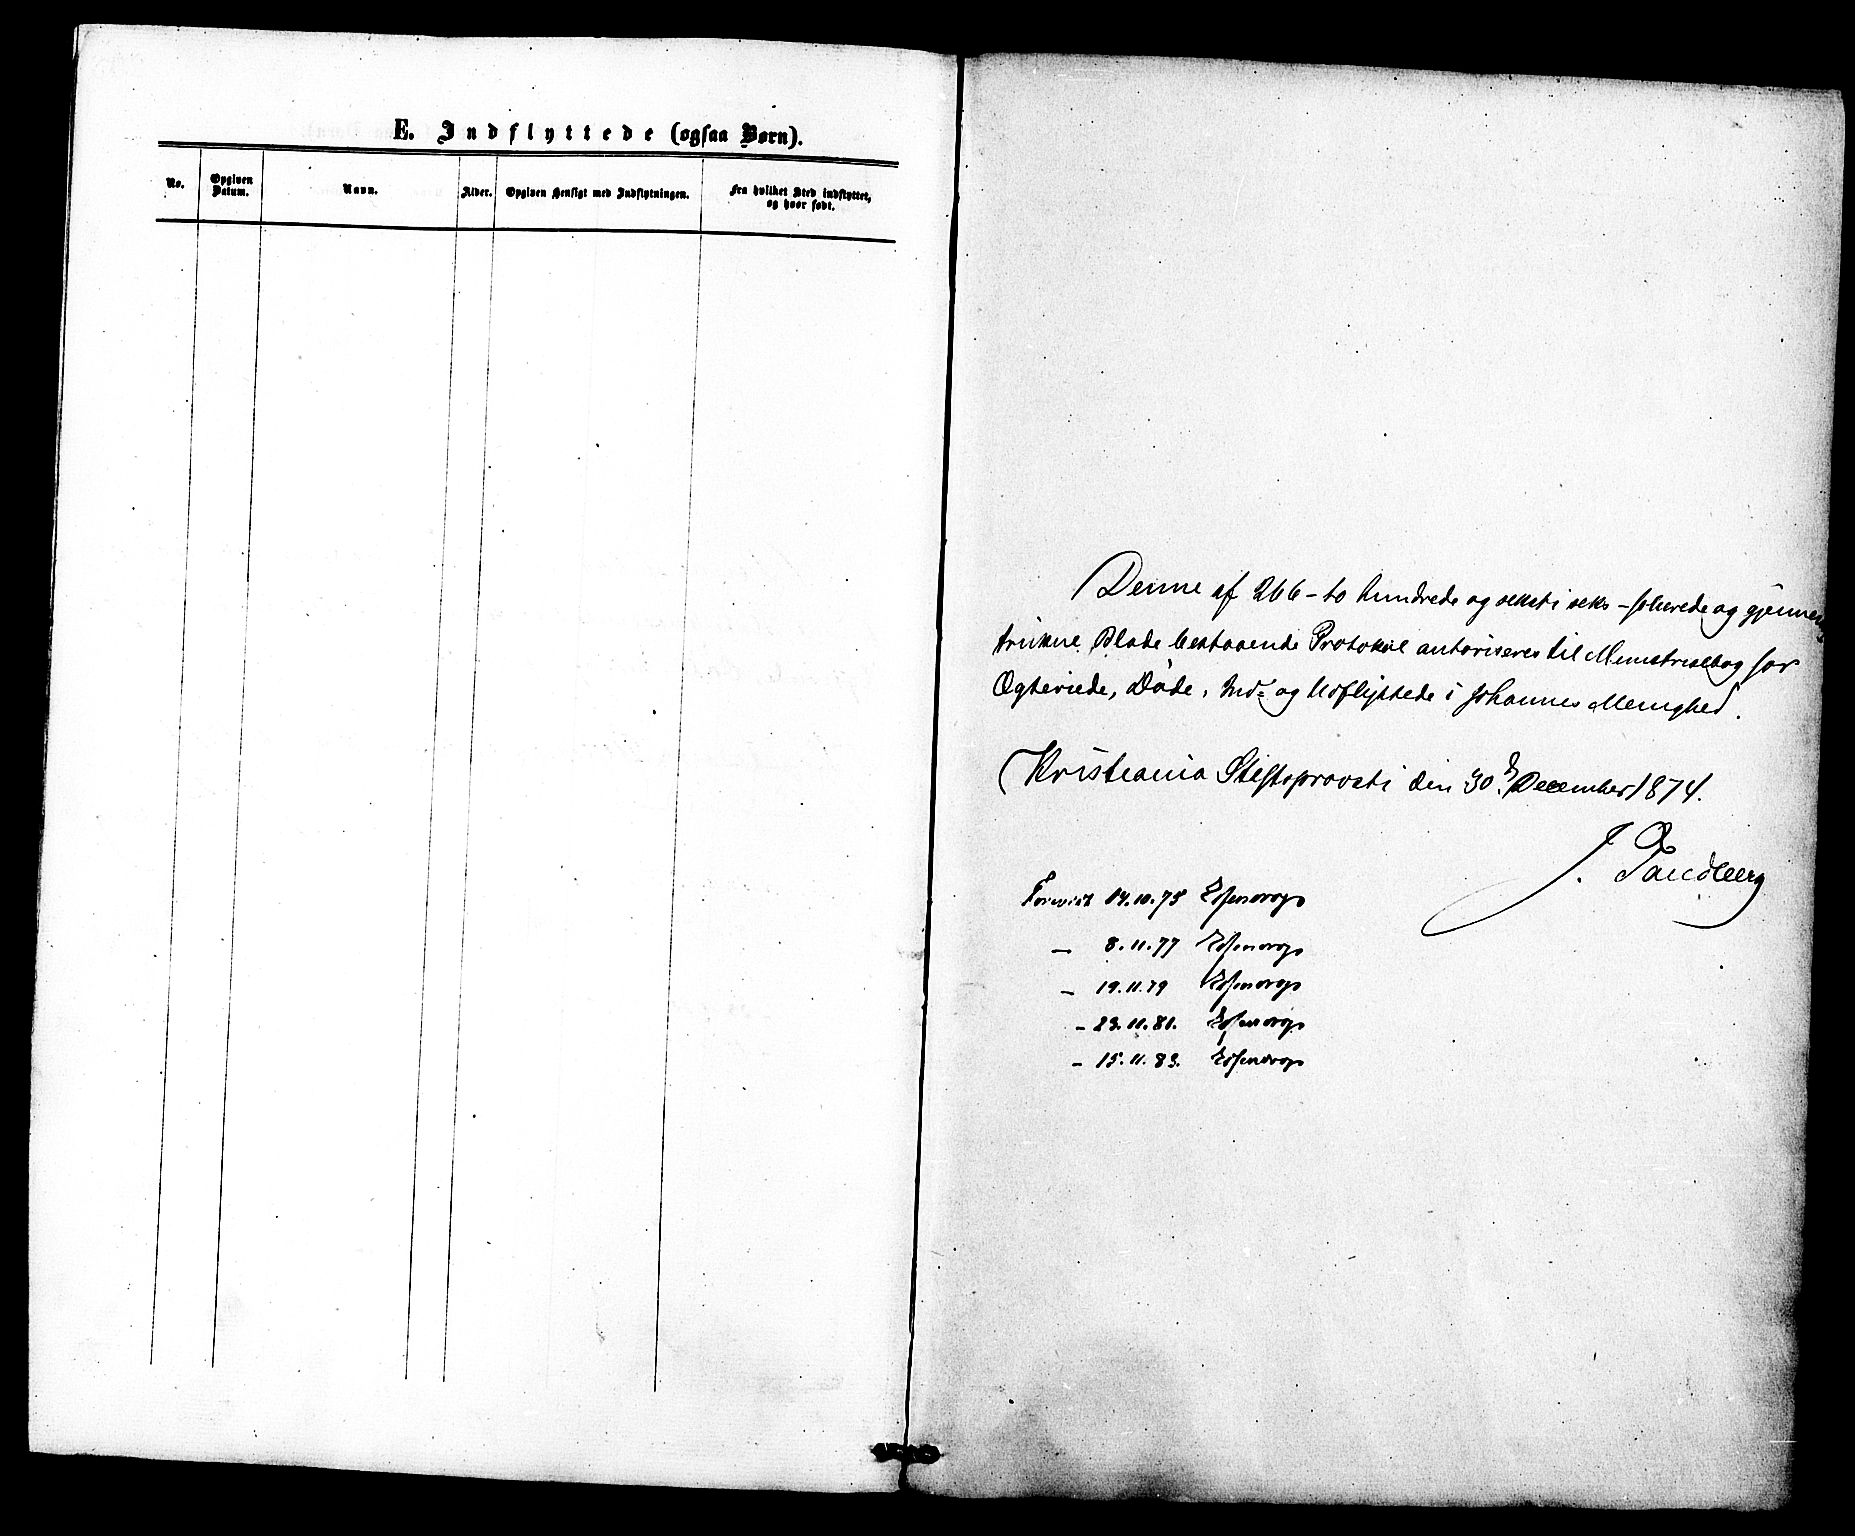 E. Indflyttede (ogsaa Børn).
No.
Opgiven Datum.
Navn.
Alder.
Opgiven Hensigt med Indflytningen.
Fra hvilket Sted indflyttet, og hvor født.
Denne af 266 - to hundrede og seksti seks - folierede og gjennem
trukne Blade bestaaende Protokol autoriseres til Ministerialbog for
Ægteviede, Døde, Ind- og Udflyttede i Johannes Menighed.
Kristiania Stiftsprovsti den 30. December 1874.
J.
Forevist 14.10.75
— 8.11.77
— 19.11.79
- 23.11.81.
- 15.11.83.